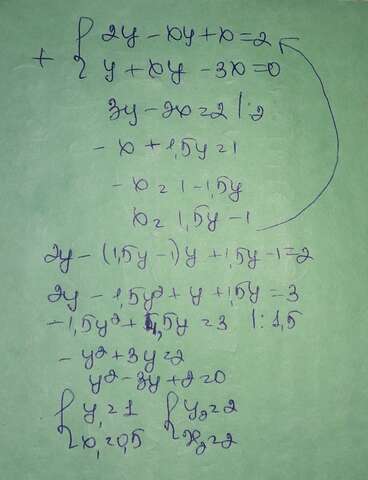 + { 2y - xy + x = 2
y + xy - 3x = 0
3y - 2x = 2 |:2
- x + 1,5y = 1
- x = 1 - 1,5y
x = 1,5y - 1
2y - (1,5y - 1)y + 1,5y - 1 = 2
2y - 1,5y² + y + 1,5y = 3
- 1,5y² + 4,5y = 3 |: 1,5
- y² + 3y = 2
y² - 3y + 2 = 0
{ y₁ = 1 { y₂ = 2
x₁ = 0,5 x₂ = 2